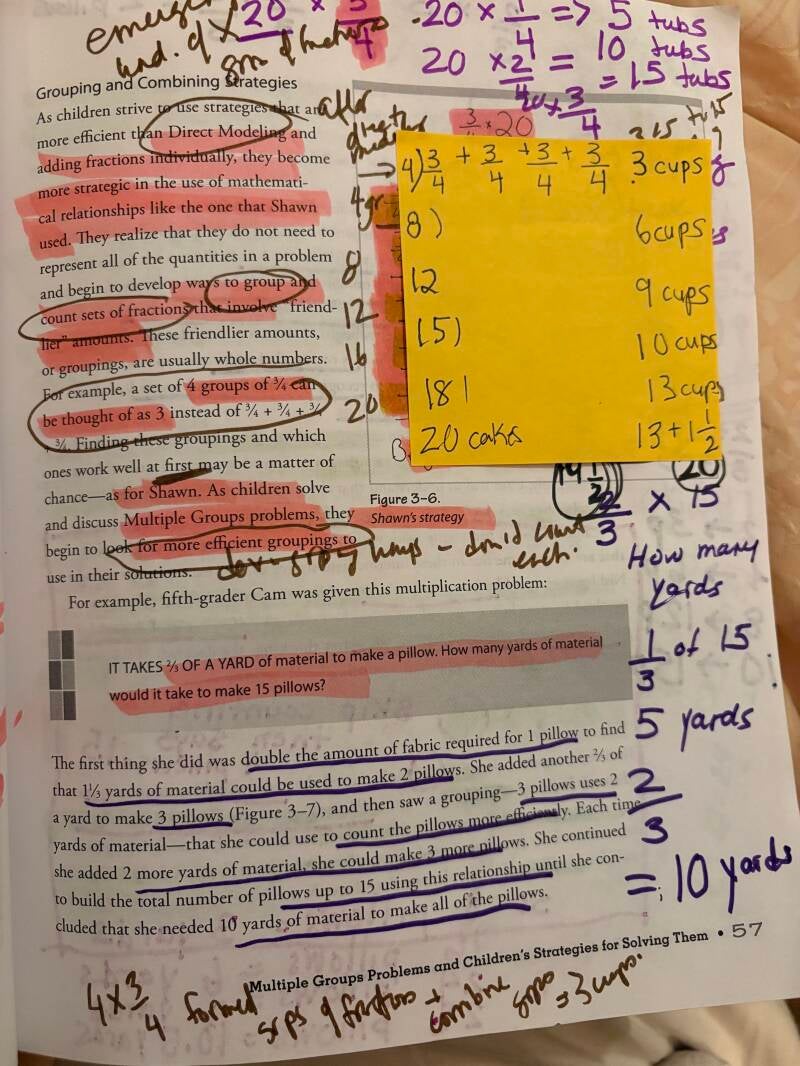 20 × 3/4
20 × 1/4 => 5 tubs
20 × 2/4 = 10 tubs
= 15 tubs
× 3/4
Grouping and Combining Strategies
As children strive to use strategies that are
more efficient than Direct Modeling and
adding fractions individually, they become
more strategic in the use of mathemati-
cal relationships like the one that Shawn
used. They realize that they do not need to
represent all of the quantities in a problem
and begin to develop ways to group and
count sets of fractions that involve "friend-
lier" amounts. These friendlier amounts,
or groupings, are usually whole numbers.
For example, a set of 4 groups of ¾ can
be thought of as 3 instead of ¾ + ¾ + ¾
¾. Finding these groupings and which
ones work well at first may be a matter of
chance—as for Shawn. As children solve
and discuss Multiple Groups problems, they
begin to look for more efficient groupings to
use in their solutions.
after
8
12
16
20
3/4 × 20
4) 3/4 + 3/4 + 3/4 + 3/4 3 cups
8) 6 cups
12 9 cups
15) 10 cups
18) 13 cups
20 cakes 13 + 1 1/2
14 1/2
20
Figure 3–6.
Shawn's strategy
2/3 × 15
How many
yards
1/3 of 15
5 yards
2/3
= 10 yards
For example, fifth-grader Cam was given this multiplication problem:
IT TAKES ⅔ OF A YARD of material to make a pillow. How many yards of material
would it take to make 15 pillows?
The first thing she did was double the amount of fabric required for 1 pillow to find
that 1⅓ yards of material could be used to make 2 pillows. She added another ⅔ of
a yard to make 3 pillows (Figure 3–7), and then saw a grouping—3 pillows uses 2
yards of material—that she could use to count the pillows more efficiently. Each time
she added 2 more yards of material, she could make 3 more pillows. She continued
to build the total number of pillows up to 15 using this relationship until she con-
cluded that she needed 10 yards of material to make all of the pillows.
Multiple Groups Problems and Children's Strategies for Solving Them • 57
4 × 3/4 formed grps of fractions + combine grps = 3 cups.